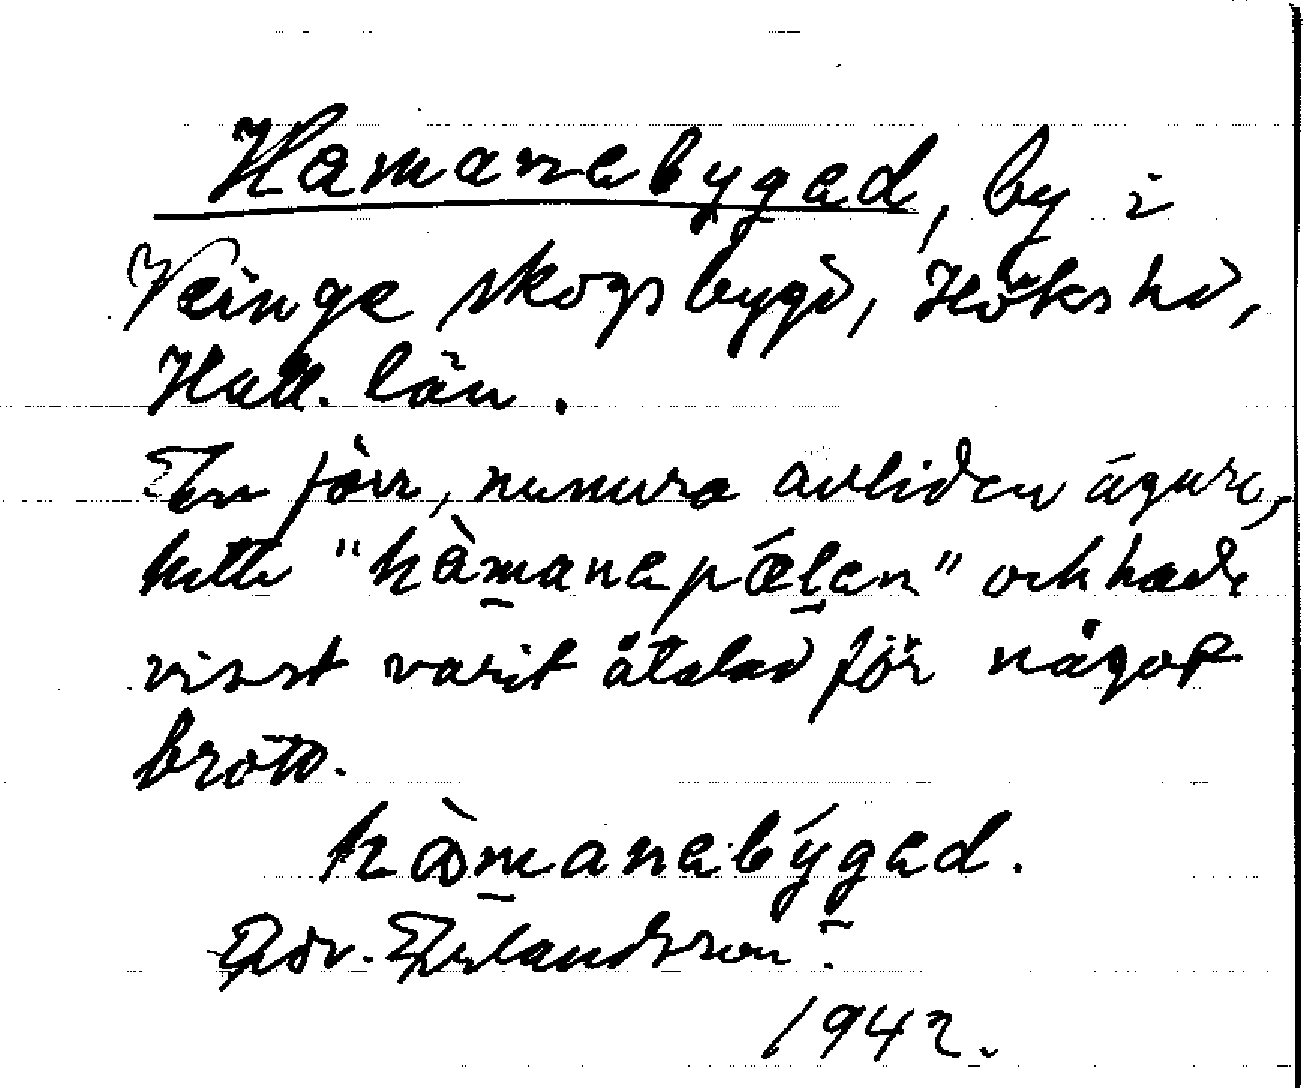 Hamanebygad, by i
Veinge skogsbygd, Höks hd,
Hall. län.
En förr, numera avliden ägare,
hette "hàmanepǽlen" och hade
visst varit åtalad för något
brott.
hàmanebýgad.
Adv. Erlandsson.
1942.